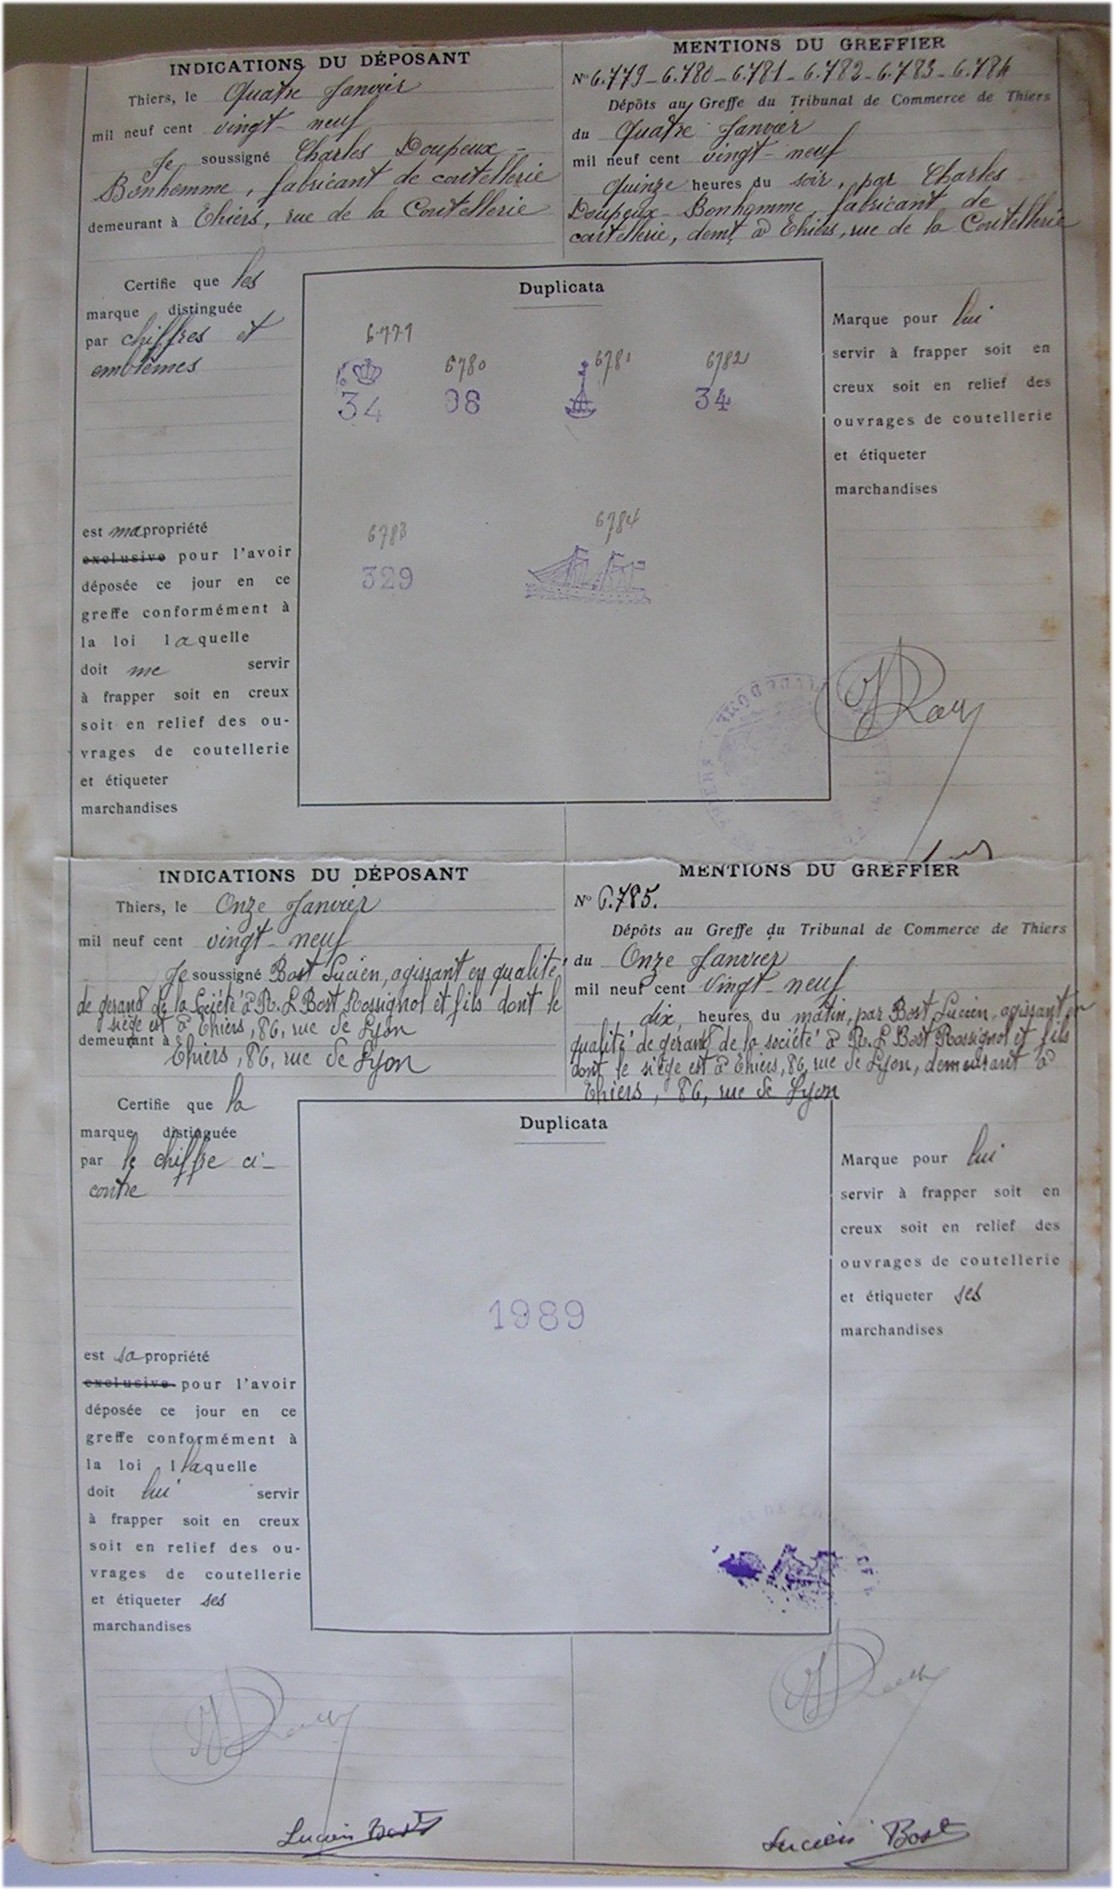 INDICATIONS DU DÉPOSANT
Thiers, le Quatre Janvier
mil neuf cent vingt-neuf
Je soussigné Charles Doupeux-
Bonhomme, fabricant de coutellerie
demeurant à Thiers, rue de la Coutellerie
MENTIONS DU GREFFIER
N° 6.779-6.780-6.781-6.782-6.783-6.784
Dépôts au Greffe du Tribunal de Commerce de Thiers
du Quatre Janvier
mil neuf cent vingt-neuf
Quinze heures du soir, par Charles
Doupeux-Bonhomme, fabricant de
coutellerie, demt à Thiers, rue de la Coutellerie
Certifie que les
marque distinguée
par chiffres et
emblèmes
est ma propriété
exclusive pour l'avoir
déposée ce jour en ce
greffe conformément à
la loi laquelle
doit me servir
à frapper soit en creux
soit en relief des ou-
vrages de coutellerie
et étiqueter
marchandises
Duplicata
6779
6780
6781
6782
34
98
34
6783
6784
329
Marque pour lui
servir à frapper soit en
creux soit en relief des
ouvrages de coutellerie
et étiqueter
marchandises
INDICATIONS DU DÉPOSANT
Thiers, le Onze Janvier
mil neuf cent vingt-neuf
Je soussigné Bost Lucien, agissant en qualité
de gérant de la Société à R. L Bost Rossignol et fils dont le
siège est à Thiers, 86, rue de Lyon
demeurant à
Thiers, 86, rue de Lyon
MENTIONS DU GREFFIER
N° 6.785.
Dépôts au Greffe du Tribunal de Commerce de Thiers
du Onze Janvier
mil neuf cent vingt-neuf
dix heures du matin, par Bost Lucien, agissant en
qualité de gérant de la société à R. L Bost Rossignol et fils
dont le siège est à Thiers, 86, rue de Lyon, demeurant à
Thiers, 86, rue de Lyon
Certifie que la
marque distinguée
par le chiffre ci-
contre
est sa propriété
exclusive pour l'avoir
déposée ce jour en ce
greffe conformément à
la loi laquelle
doit lui servir
à frapper soit en creux
soit en relief des ou-
vrages de coutellerie
et étiqueter ses
marchandises
Duplicata
1989
Marque pour lui
servir à frapper soit en
creux soit en relief des
ouvrages de coutellerie
et étiqueter ses
marchandises
Lucien Bost
Lucien Bost